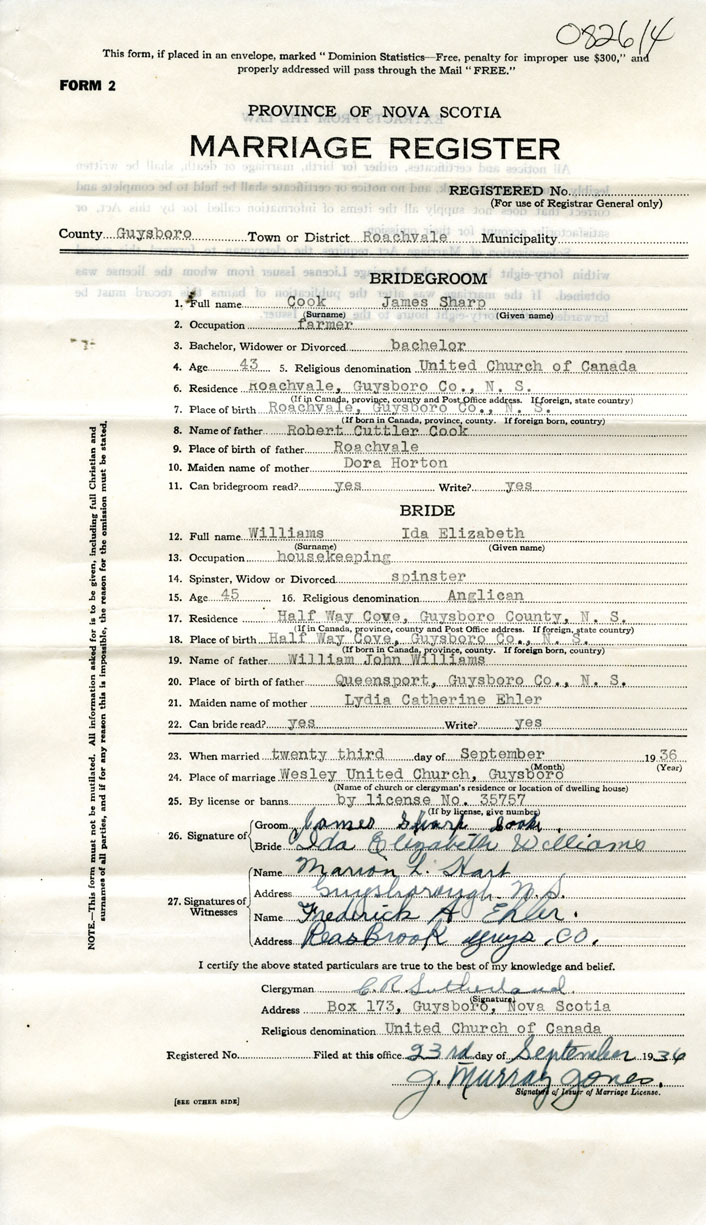 082614
This form, if placed in an envelope, marked " Dominion Statistics—Free, penalty for improper use $300," and
properly addressed will pass through the Mail "FREE."
FORM 2
PROVINCE OF NOVA SCOTIA
MARRIAGE REGISTER
REGISTERED No.
(For use of Registrar General only)
County Guysboro Town or District Roachvale Municipality
BRIDEGROOM
1. Full name Cook James Sharp
(Surname) (Given name)
2. Occupation farmer
3. Bachelor, Widower or Divorced bachelor
4. Age 43 5. Religious denomination United Church of Canada
6. Residence Roachvale, Guysboro Co., N. S.
(If in Canada, province, county and Post Office address. If foreign, state country)
7. Place of birth Roachvale, Guysboro Co., N. S.
(If born in Canada, province, county. If foreign born, country)
8. Name of father Robert Cuttler Cook
9. Place of birth of father Roachvale
10. Maiden name of mother Dora Horton
11. Can bridegroom read? yes Write? yes
BRIDE
12. Full name Williams Ida Elizabeth
(Surname) (Given name)
13. Occupation housekeeping
14. Spinster, Widow or Divorced spinster
15. Age 45 16. Religious denomination Anglican
17. Residence Half Way Cove, Guysboro County, N. S.
(If in Canada, province, county and Post Office address. If foreign, state country)
18. Place of birth Half Way Cove, Guysboro Co., N. S.
(If born in Canada, province, county. If foreign born, country)
19. Name of father William John Williams
20. Place of birth of father Queensport, Guysboro Co., N. S.
21. Maiden name of mother Lydia Catherine Ehler
22. Can bride read? yes Write? yes
23. When married twenty third day of September 1936
(Month) (Year)
24. Place of marriage Wesley United Church, Guysboro
(Name of church or clergyman's residence or location of dwelling house)
25. By license or banns by license No. 35757
(If by license, give number)
26. Signature of
Groom James Sharp Cook
Bride Ida Elizabeth Williams
27. Signatures of Witnesses
Name Marion L. Hart
Address Guysborough N.S.
Name Frederick A Ehler.
Address PeasBrook guys. CO.
I certify the above stated particulars are true to the best of my knowledge and belief.
Clergyman C.R. Sutherland
(Signature)
Address Box 173, Guysboro, Nova Scotia
Religious denomination United Church of Canada
Registered No. Filed at this office 23rd day of September 1936
J. Murray Jones.
Signature of Issuer of Marriage License.
[SEE OTHER SIDE]
NOTE.—This form must not be mutilated. All information asked for is to be given, including full Christian and
surnames of all parties, and if for any reason this is impossible, the reason for the omission must be stated.